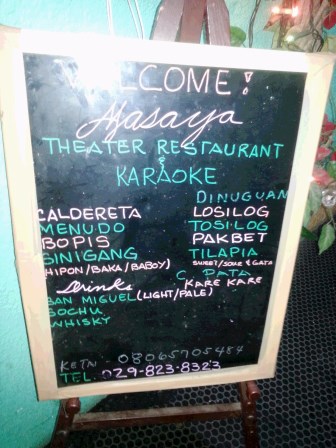 WELCOME!
Masaya
THEATER RESTAURANT
&
KARAOKE
DINUGUAN
CALDERETA LOSILOG
MENUDO TOSILOG
BOPIS PAKBET
SINIGANG TILAPIA
HIPON/BAKA/BABOY) SWEET/SOUR & GATA
C. PATA
Drinks KARE KARE
SAN MIGUEL (LIGHT/PALE)
SOCHU
WHISKY
KETN - 08065705484
TEL. 029-823-8323